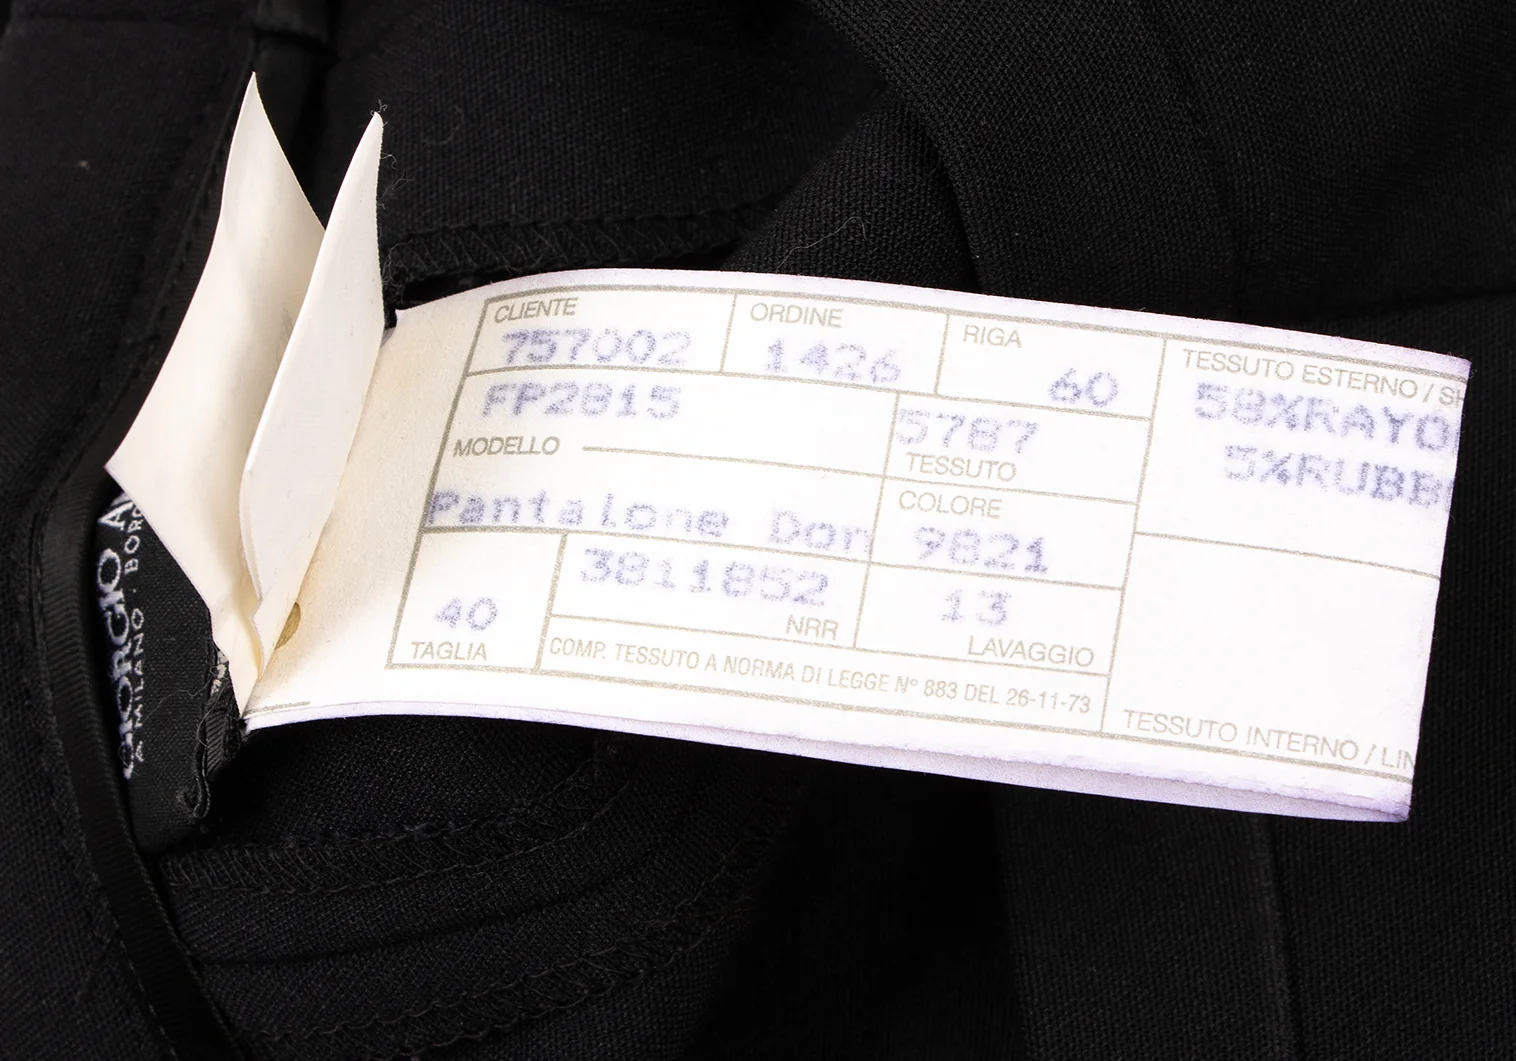 CLIENTE
757002
ORDINE
1426
RIGA
60
TESSUTO ESTERNO / SH
58%RAYO
5%RUBB
FP2815
MODELLO
5787
TESSUTO
Pantalone Don
COLORE
9821
40
TAGLIA
3811852
NRR
13
LAVAGGIO
COMP. TESSUTO A NORMA DI LEGGE N° 883 DEL 26-11-73
TESSUTO INTERNO / LIN
GIORGIO
A MILANO · BOR